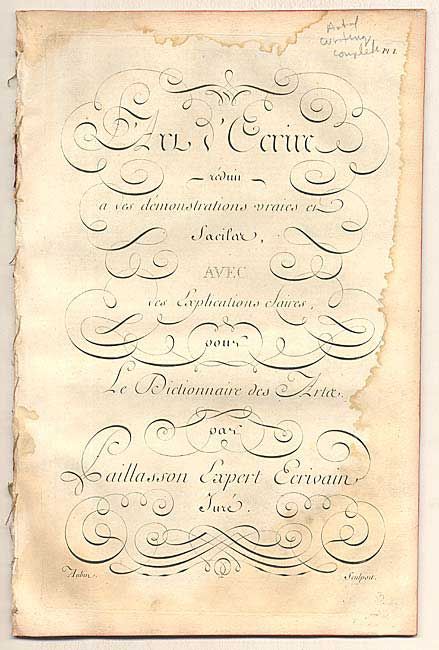 Art of
writing
complete
Pl. I.
L'Art d'Ecrire
réduit
a des démonstrations vraies et
faciles,
AVEC
des Explications claires,
pour
Le Dictionnaire des Arts.
par
Paillasson Expert Ecrivain
Juré.
Aubin. Sculpsit.